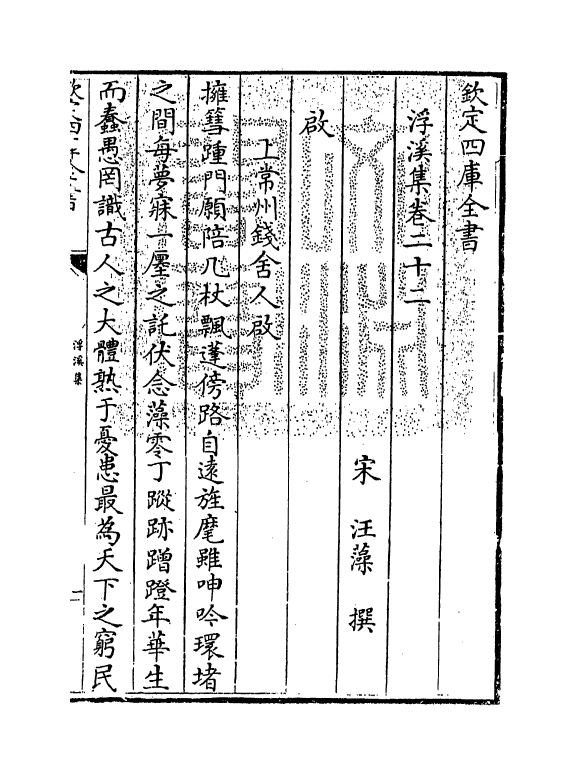 欽定四庫全書
浮溪集卷二十二
宋　汪藻　撰
啟
上常州錢舍人啟
擁篲踵門願陪几杖飄蓬傍路自遠旌麾雖呻吟環堵
之間每夢寐一廛之託伏念藻零丁蹤跡蹭蹬年華生
而蠢愚罔識古人之大體熟于憂患最為天下之窮民
浮溪集